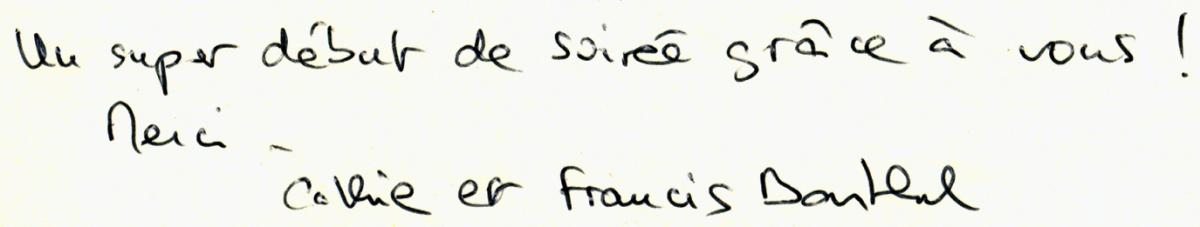 Un super début de soirée grâce à vous !
Merci -
et Francis